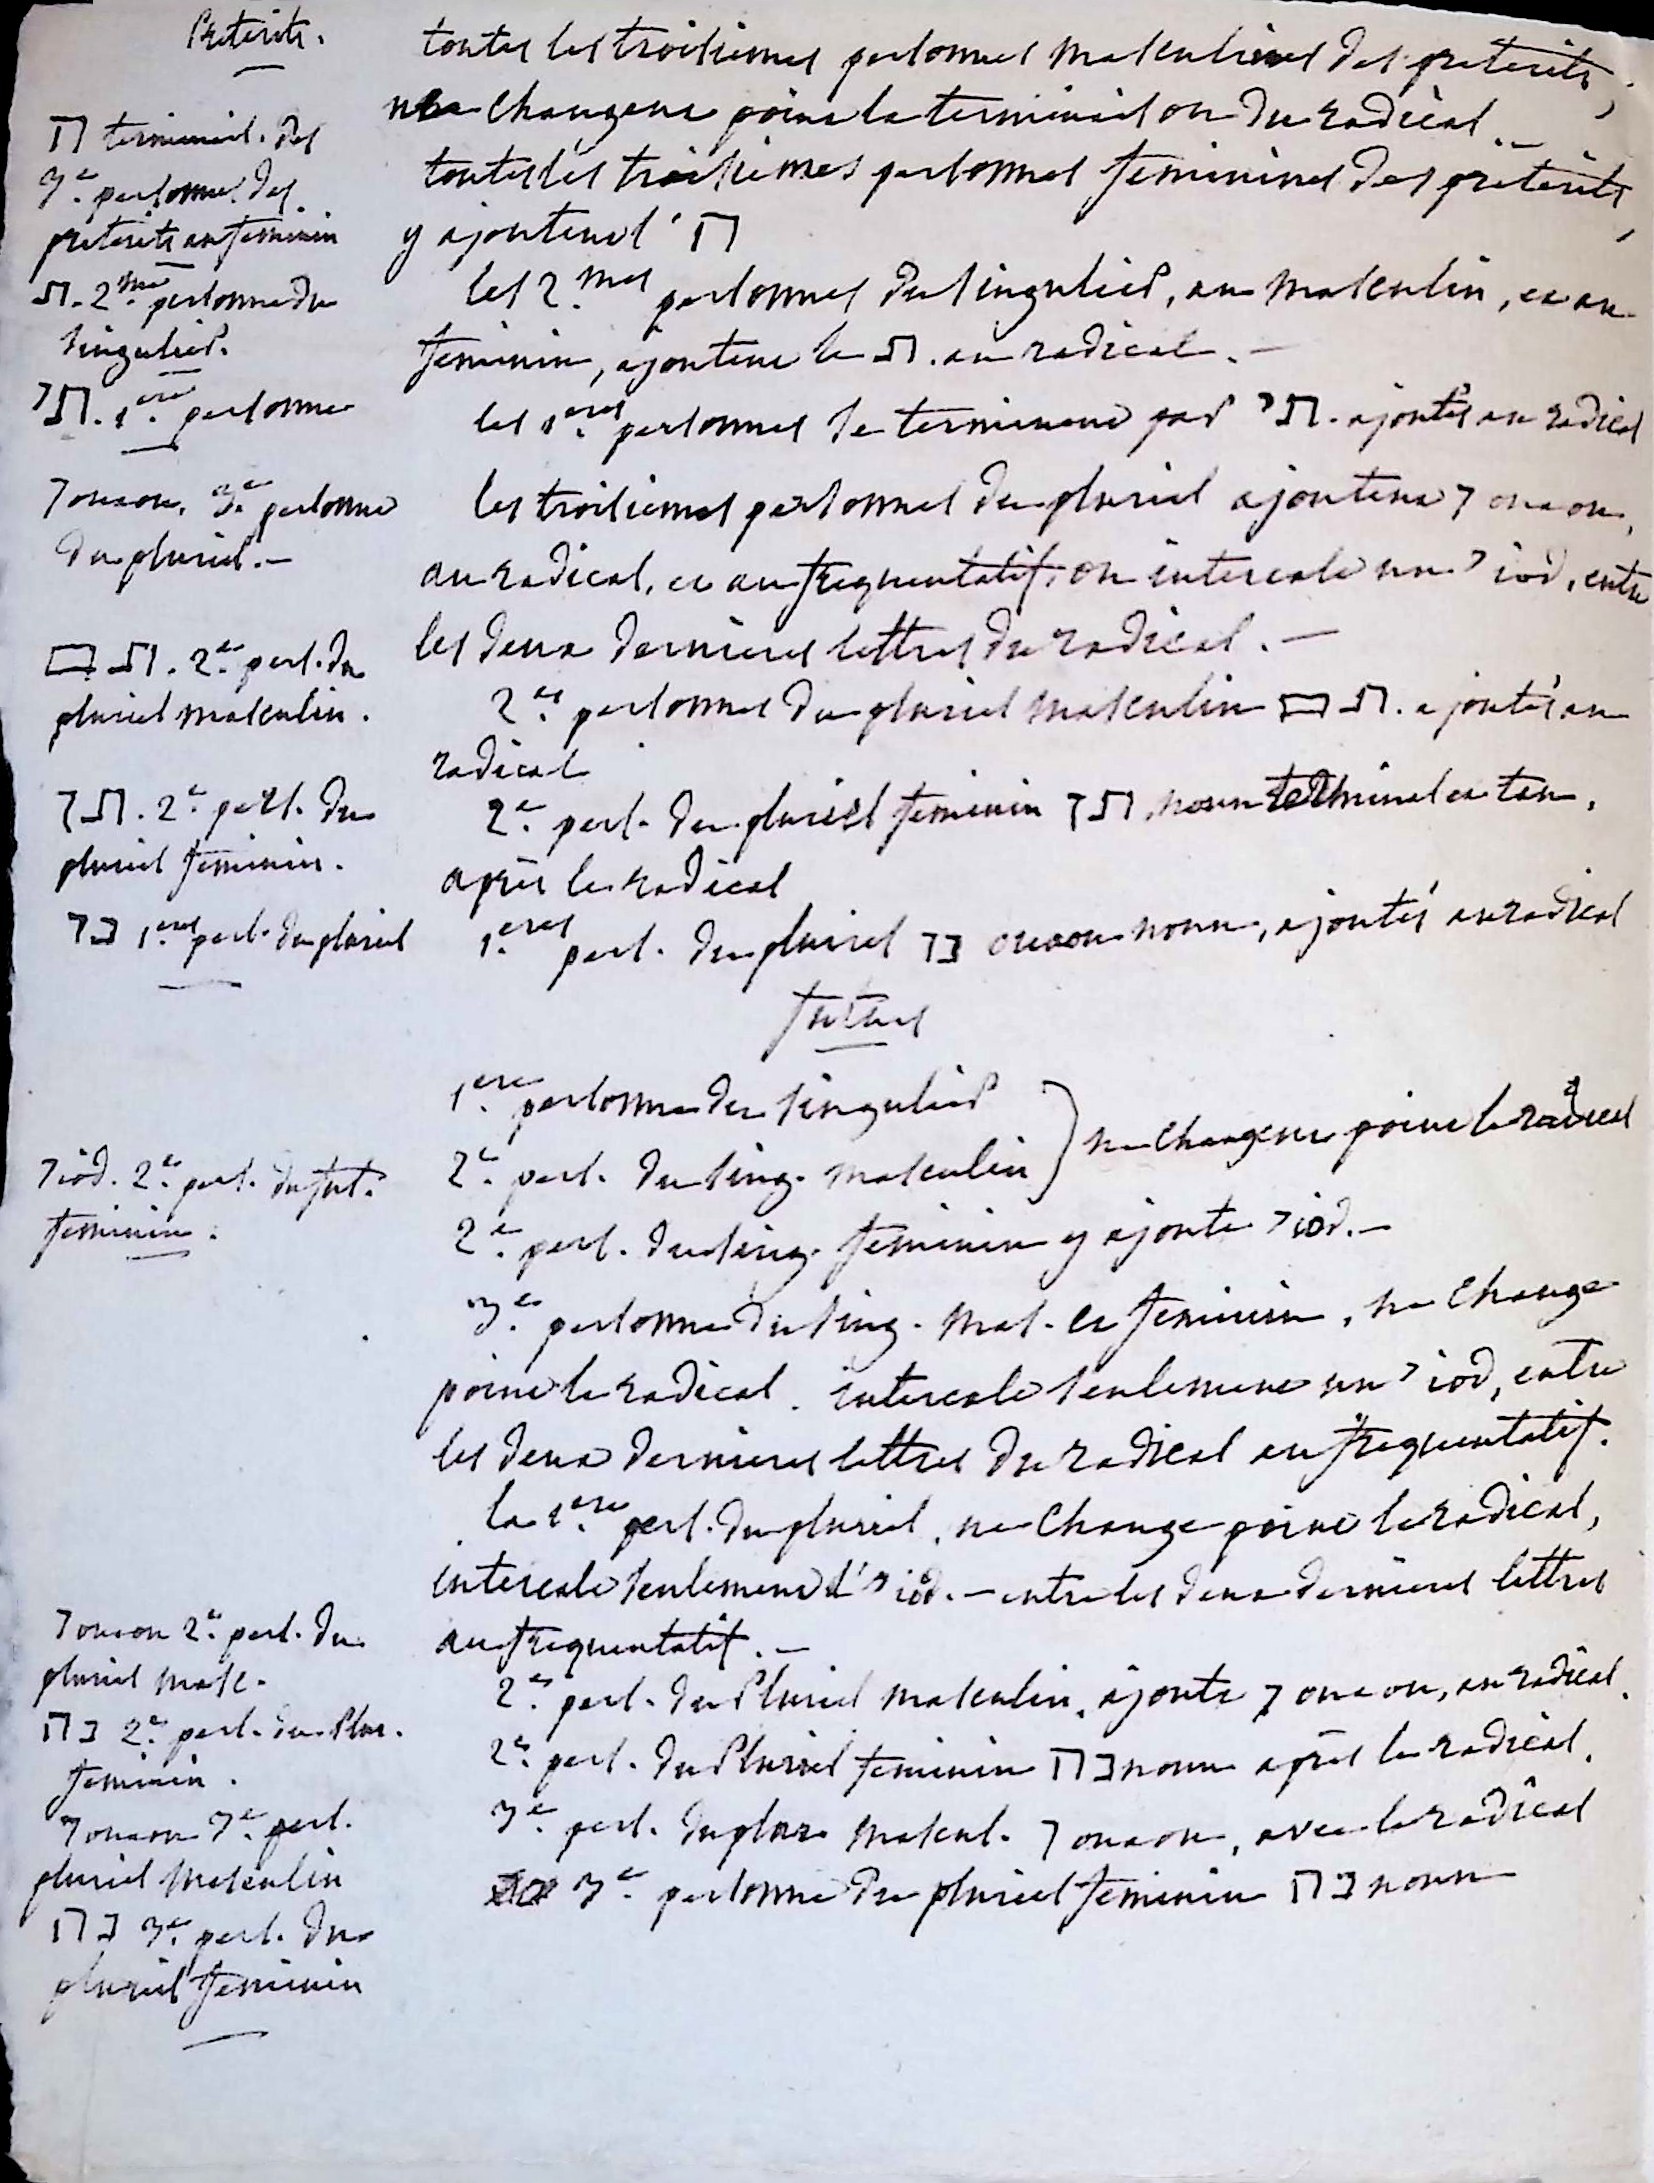 Preterits.
ה terminais. des
3.e personnes des
preterits au feminin
ת. 2.me personne du
singulier.
תי. 1.ere personne
ו ouaou, 3.e personne
du pluriel. —
תם. 2.e pers. du
pluriel masculin.
תן. 2.e pers. du
pluriel feminin.
נו 1.eres pers. du pluriel
י iod. 2.e pers. du fut.
feminin.
ו ouaou 2.e pers. du
pluriel masc.
נה 2.e pers. du Plur.
feminin.
ו ouaou 3.e pers.
pluriel masculin
נה 3.e pers. du
pluriel feminin
toutes les troisiemes personnes masculines des preterits,
ne changent point la terminaison du radical —
toutes les troisiemes personnes feminines des préterits,
y ajoutent l' ה
les 2.mes personnes du singulier, au masculin, et au
feminin, ajoutent le ת. au radical. —
les 1.eres personnes se terminent par תי. ajoutés au radical
les troisiemes personnes du pluriel ajoutent ו ouaou,
au radical, et au frequentatif, on intercale un י iod, entre
les deux dernieres lettres du radical. —
2.es personnes du pluriel masculin תם. ajoutés au
radical
2.e pers. du pluriel feminin תן, noun terminal et tau,
après le radical
1.eres pers. du pluriel נו ouaou noun, ajoutés au radical
futurs
1.ere personne du singulier
2.e pers. du sing. masculin } ne changent point le radical
2.e pers. du sing. feminin y ajoute י iod. —
3.e personne du sing. mas. et feminin, ne change
point le radical. intercale seulement un י iod, entre
les deux dernieres lettres du radical au frequentatif.
la 1.ere pers. du pluriel, ne change point le radical,
intercale seulement l' י iod. — entre les deux dernieres lettres
au frequentatif. —
2.e pers. du Pluriel masculin, ajoute ו ouaou, au radical.
2.e pers. du Pluriel feminin נה noun après le radical.
3.e pers. du plur. mascul. ו ouaou, avec le radical
3.e personne du pluriel feminin נה noun